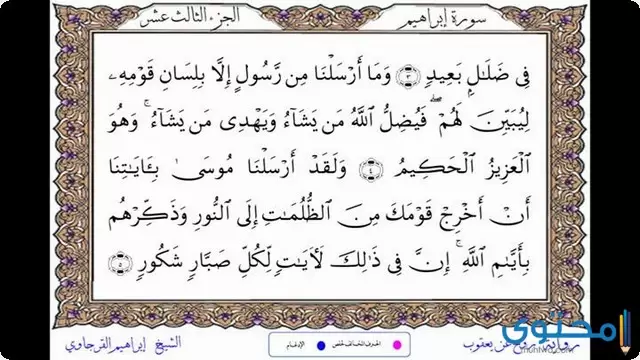 سورة إبراهيم الجزء الثالث عشر
فِى ضَلَـٰلٍۭ بَعِيدٍ ٣ وَمَآ أَرْسَلْنَا مِن رَّسُولٍ إِلَّا بِلِسَانِ قَوْمِهِۦ
لِيُبَيِّنَ لَهُمْ ۖ فَيُضِلُّ ٱللَّهُ مَن يَشَآءُ وَيَهْدِى مَن يَشَآءُ ۚ وَهُوَ
ٱلْعَزِيزُ ٱلْحَكِيمُ ٤ وَلَقَدْ أَرْسَلْنَا مُوسَىٰ بِـَٔايَـٰتِنَآ
أَنْ أَخْرِجْ قَوْمَكَ مِنَ ٱلظُّلُمَـٰتِ إِلَى ٱلنُّورِ وَذَكِّرْهُم
بِأَيَّىٰمِ ٱللَّهِ ۚ إِنَّ فِى ذَٰلِكَ لَـَٔايَـٰتٍ لِّكُلِّ صَبَّارٍ شَكُورٍ ٥
عن يعقوب الحرف المخالف لحفص الإدغام الشيخ إبراهيم القرجاوي
محتوى